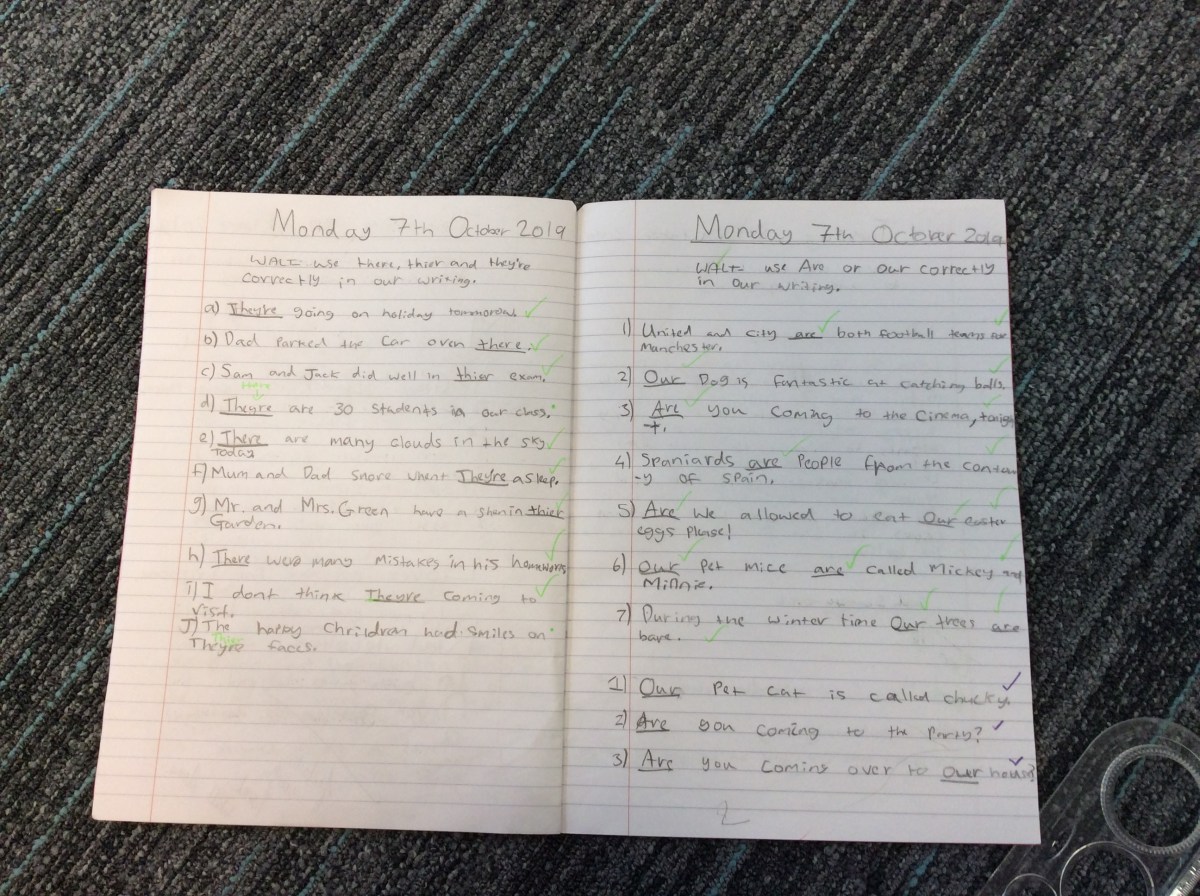 Monday 7th October 2019
WALT- use there, thier and they're
correctly in our writing.
a) They're going on holiday tommorow.
b) Dad Parked the Car over there.
c) Sam and Jack did well in thier exam.
There
d) Theyre are 30 students in our class.
e) There are many clouds in the sky
today
f) Mum and Dad snore when They're asleep.
g) Mr. and Mrs. Green have a shen in thier
Garden.
h) There were many mistakes in his homework
i) I dont think Theyre coming to
visit.
J) The happy Chrildran had smiles on
Theyre faces.
Monday 7th October 2019
WALT- use Are or our correctly
in our writing.
1) United and city are both football teams for
Manchester.
2) Our Dog is fantastic at catching balls.
3) Are you coming to the Cinema, tonigh
t.
4) Spaniards are People from the
-y of Spain.
5) Are we allowed to eat Our easter
eggs please!
6) Our Pet mice are called Mickey and
Minnie.
7) During the winter time Our trees are
bare.
1) Our Pet cat is called chucky.
2) Are you coming to the Party?
3) Are you coming over to our house?
2